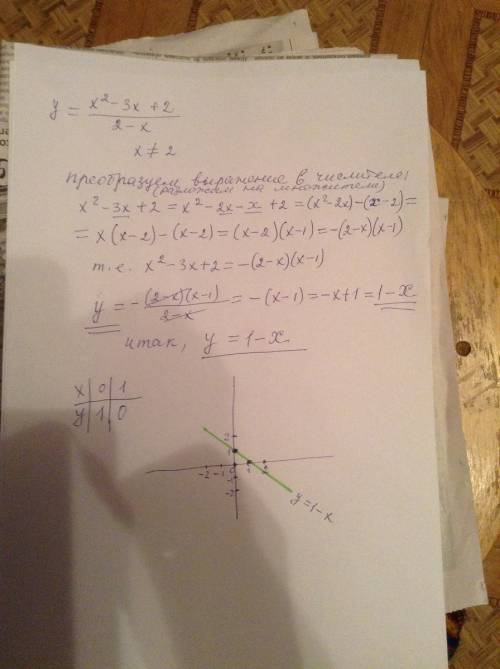 y = x² - 3x + 2 / 2 - x
x ≠ 2
преобразуем выражение в числителе:
(разложим на множители)
x² - 3x + 2 = x² - 2x - x + 2 = (x² - 2x) - (x - 2) =
= x(x - 2) - (x - 2) = (x - 2)(x - 1) = -(2 - x)(x - 1)
т.е. x² - 3x + 2 = -(2 - x)(x - 1)
y = - (2 - x)(x - 1) / 2 - x = -(x - 1) = -x + 1 = 1 - x
итак, y = 1 - x
x | 0 | 1
y | 1 | 0
2
1
-2 -1 0 1 2
-1
-2
y = 1 - x